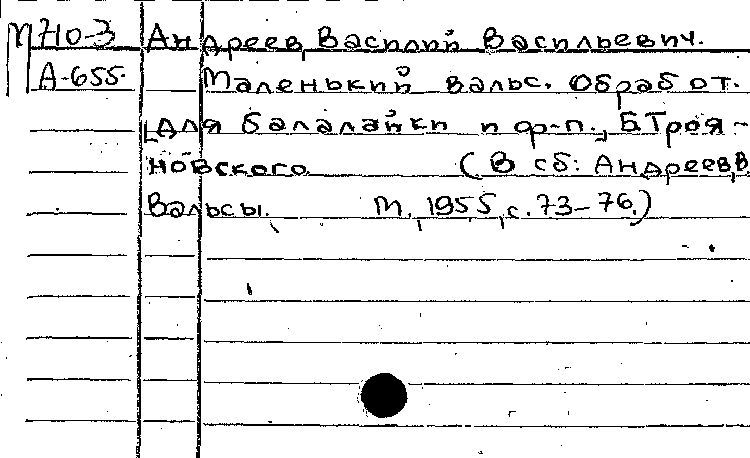 М710-3 Андреев, Василий Васильевич.
А-655. Маленький вальс. Обработ.
для балалайки и ф-п., Б.Троя-
новского (В сб: Андреев,В
Вальсы. М., 1955, с. 73-76.)